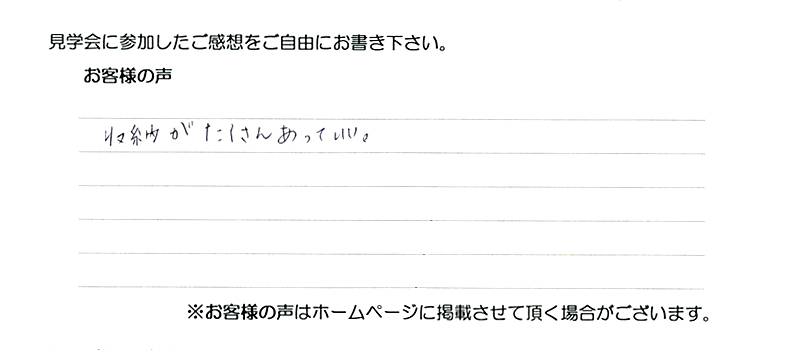 見学会に参加したご感想をご自由にお書き下さい。
お客様の声
収納がたくさんあっていい。
※お客様の声はホームページに掲載させて頂く場合がございます。